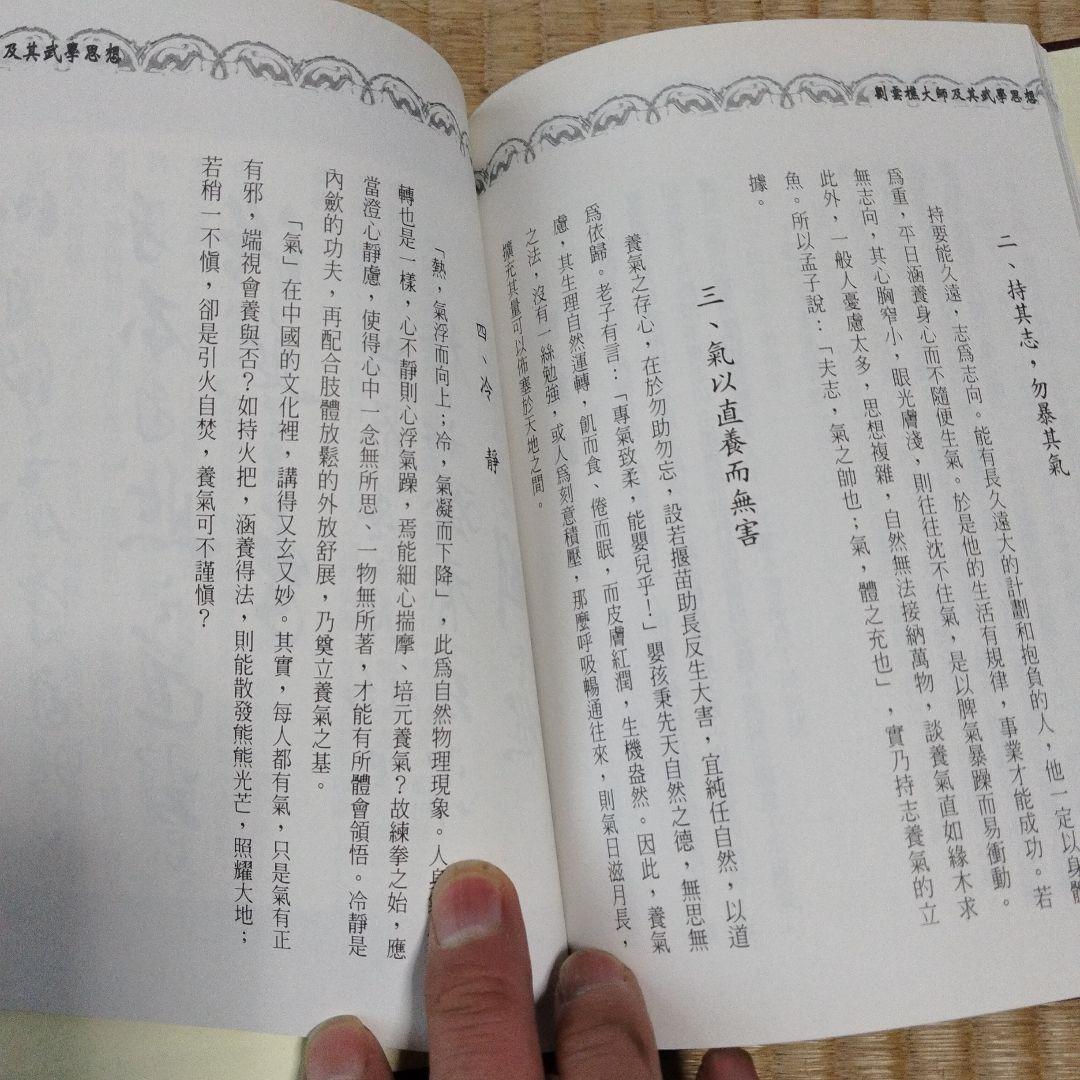 劉雲樵大師及其武學思想
二、持其志，勿暴其氣
持要能久遠，志爲志向。能有長久遠大的計劃和抱負的人，他一定以身體
爲重，平日涵養身心而不隨便生氣。於是他的生活有規律，事業才能成功。若
無志向，其心胸窄小，眼光膚淺，則往往沈不住氣，是以脾氣暴躁而易衝動。
此外，一般人憂慮太多，思想複雜，自然無法接納萬物，談養氣直如緣木求
魚。所以孟子說：「夫志，氣之帥也；氣，體之充也」，實乃持志養氣的立
據。
三、氣以直養而無害
養氣之存心，在於勿助勿忘，設若揠苗助長反生大害，宜純任自然，以道
爲依歸。老子有言：「專氣致柔，能嬰兒乎！」嬰孩秉先天自然之德，無思無
慮，其生理自然運轉，飢而食、倦而眠，而皮膚紅潤，生機盎然。因此，養氣
之法，沒有一絲勉強，或人爲刻意積壓，那麼呼吸暢通往來，則氣日滋月長，
擴充其量可以佈塞於天地之間。
及其武學思想
四、冷靜
「熱，氣浮而向上；冷，氣凝而下降」，此爲自然物理現象。人身
轉也是一樣，心不靜則心浮氣躁，焉能細心揣摩、培元養氣？故練拳之始，應
當澄心靜慮，使得心中一念無所思、一物無所著，才能有所體會領悟。冷靜是
內斂的功夫，再配合肢體放鬆的外放舒展，乃奠立養氣之基。
「氣」在中國的文化裡，講得又玄又妙。其實，每人都有氣，只是氣有正
有邪，端視會養與否？如持火把，涵養得法，則能散發熊熊光芒，照耀大地；
若稍一不慎，卻是引火自焚，養氣可不謹慎？